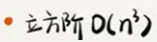 • 立方阶 O(n³)